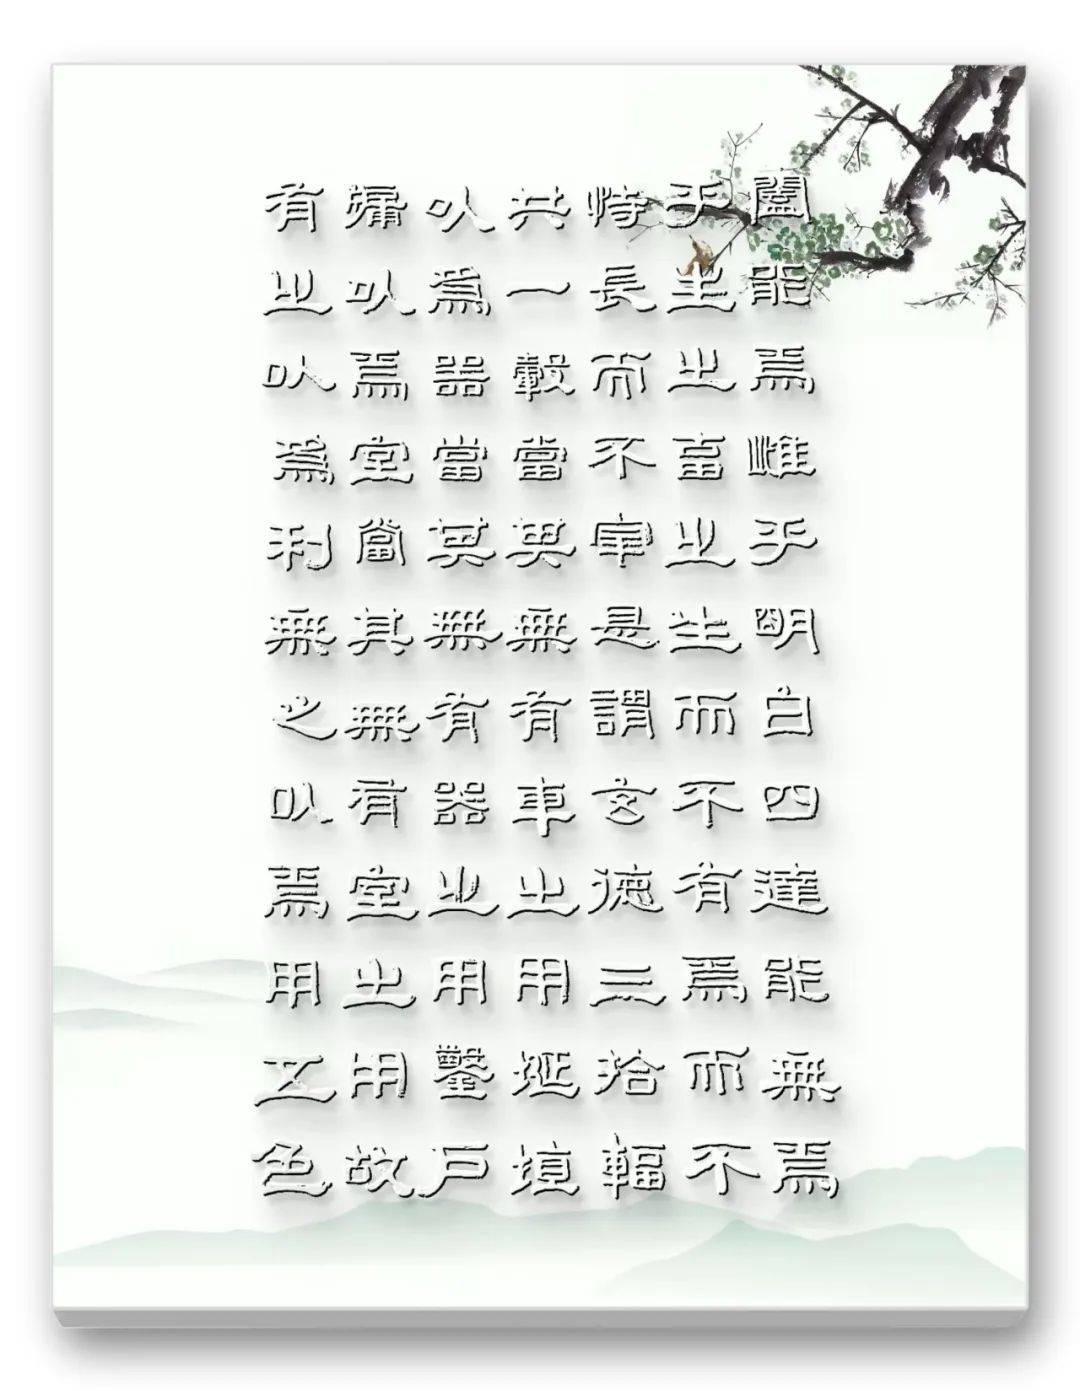 闔能為雌乎明白四達能無為
乎生之畜之生而不有為而不
恃長而不宰是謂玄德三拾輻
共一轂當其無有車之用埏埴
以爲器當其無有器之用鑿戶
牖以為室當其無有室之用故
有之以爲利無之以為用五色